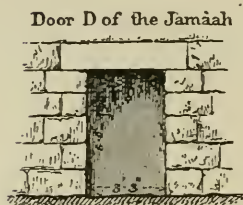 Door D of the Jamàah
3' 3"